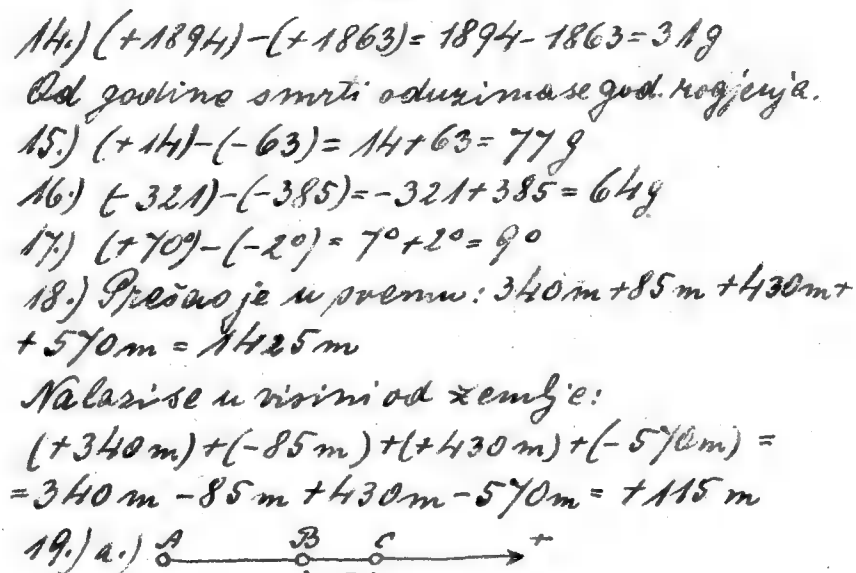 14.) (+1894)-(+1863)= 1894-1863=31g
Od godine smrti oduzima se god. rogjenja.
15.) (+14)-(-63)= 14+63= 77g
16.) (-321)-(-385)=-321+385= 64g
17.) (+7°)-(-2°)= 7°+2°= 9°
18.) Prešao je u svemu: 340m+85m+430m+
+570m = 1425m
Nalazi se u visini od zemlje:
(+340m)+(-85m)+(+430m)+(-570m) =
=340m -85m +430m-570m= +115m
19.) a.) A B C +